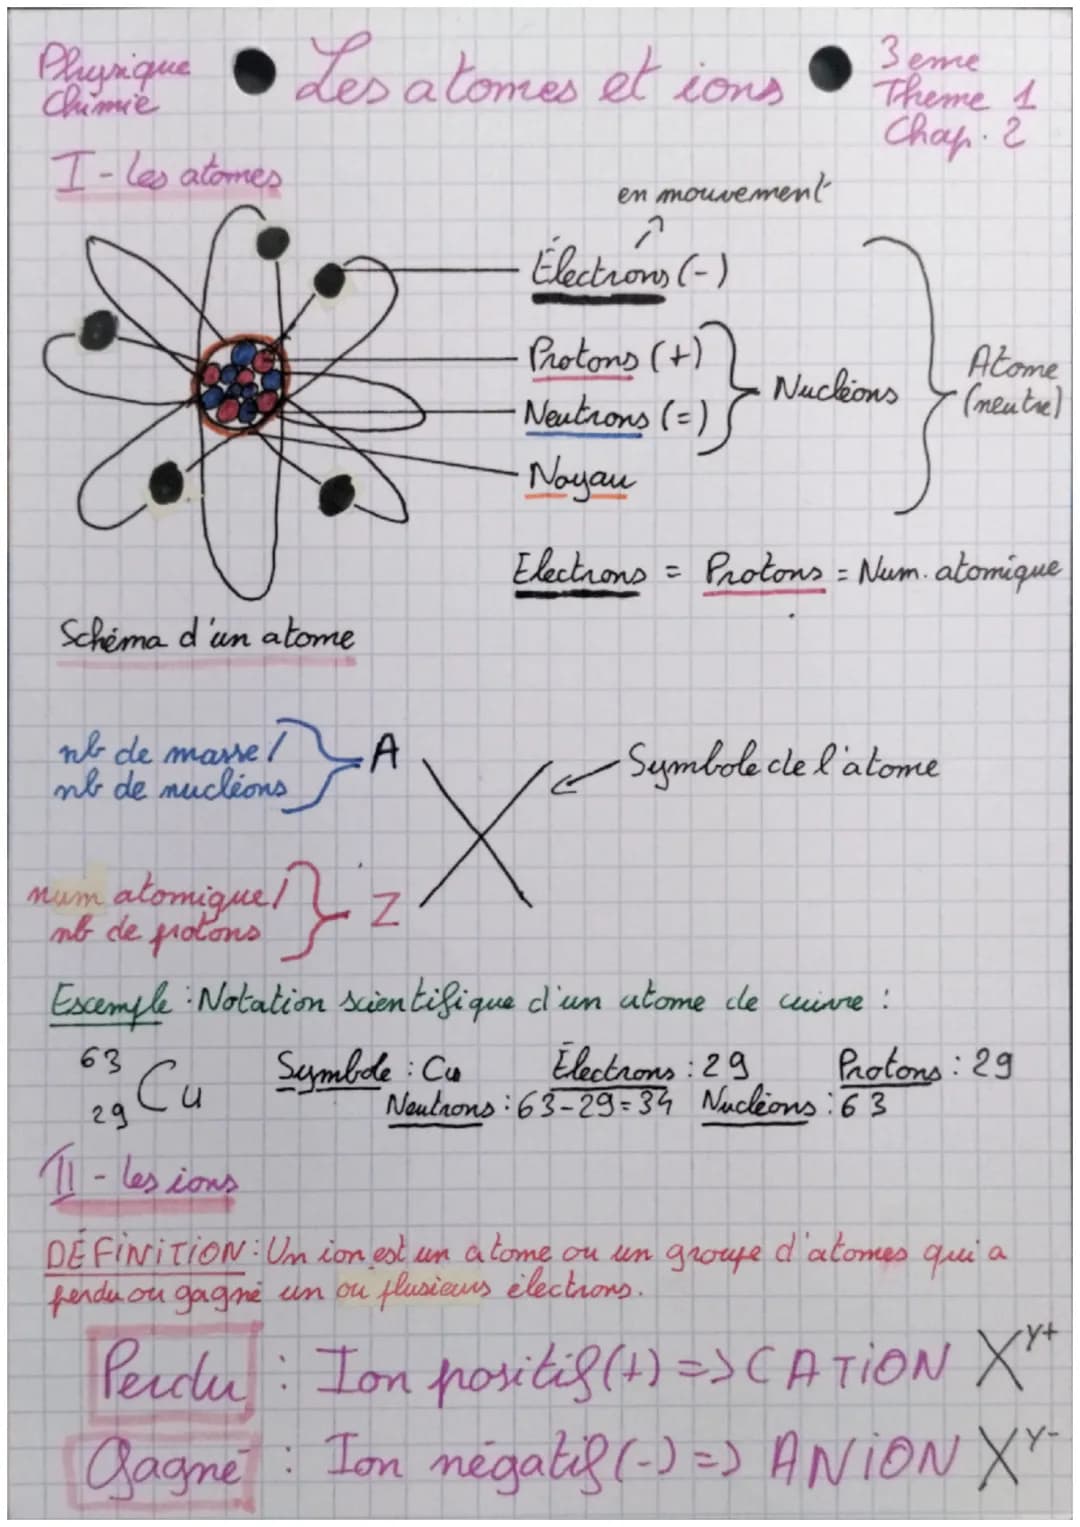 Physique
Chimie
Les atomes et ions
3eme
Theme 1
Chap. 2
I - les atomes
en mouvement
Électrons (-)
Protons (+)
Neutrons (=)
Nucléons
Atome
(neutre)
Noyau
Electrons = Protons = Num. atomique
Schéma d'un atome
nb de masse /
nb de nucléons
A
Symbole de l'atome
X
num atomique /
nb de protons
Z
Exemple : Notation scientifique d'un atome de cuivre :
63
29 Cu
Symbole : Cu Électrons : 29 Protons : 29
Neutrons : 63-29=34 Nucléons : 63
II - les ions
DÉFINITION : Un ion est un atome ou un groupe d'atomes qui a
perdu ou gagné un ou plusieurs électrons.
Perdu : Ion positif (+) => CATION X^y+
Gagné : Ion négatif (-) => ANION X^y-